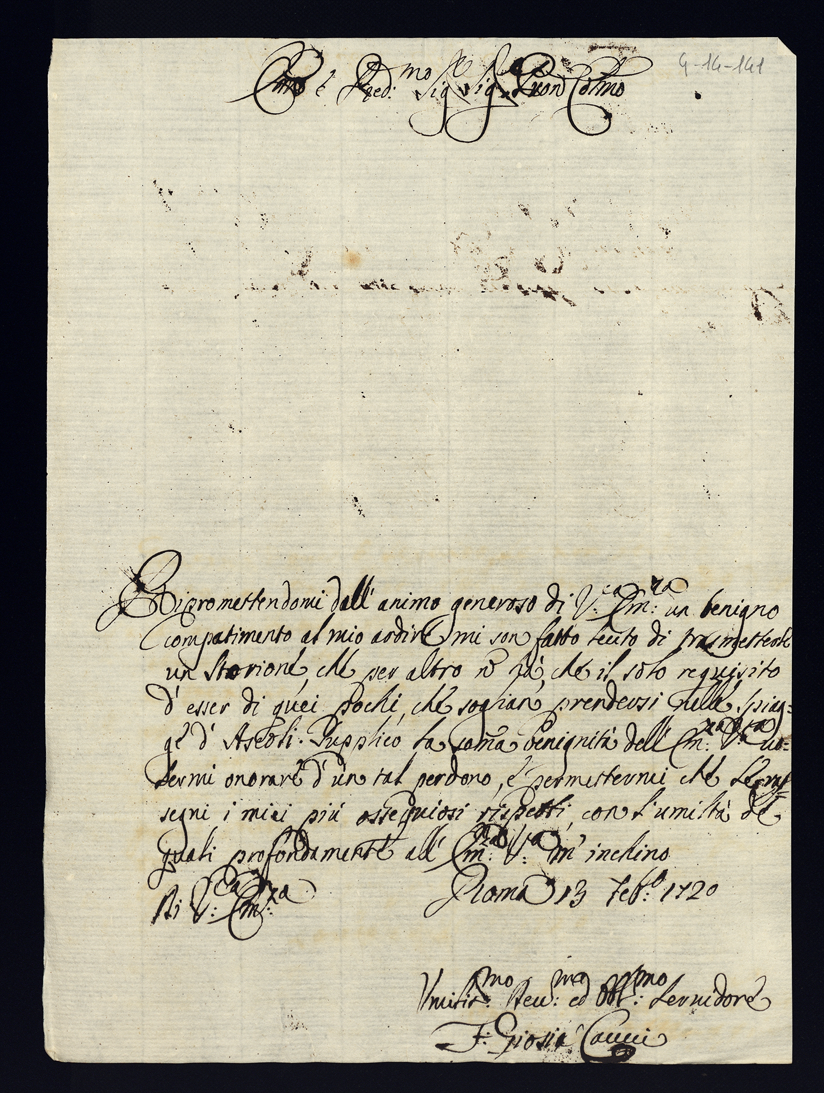 Em̃o e Rev: mo Sig.r Sig.r Pron Colmo
9-14-141
Ripromettendomi dall' animo generoso di V.ra Em:za un benigno
compatimento al mio ardire mi son fatto lecito di trasmetterle
un Storione, che per altro nõ hà, che il solo requisito
d' esser di quei pochi, che sogliano prendersi nelle spiag-
ge d' Ascoli. Supplico la som̃a benignità dell' Em:za V:ra vo-
lermi onorare d' un tal perdono, e permettermi che le ras-
segni i miei più ossequiosi rispetti, con l' umiltà de
quali profondamente all' Em:za V:ra m' inchino
Roma 13 Feb:o 1720
Di V:ra Em:za
Umiliss:mo Dev:mo ed Obl:mo Servidore
F: Giosia Caucci